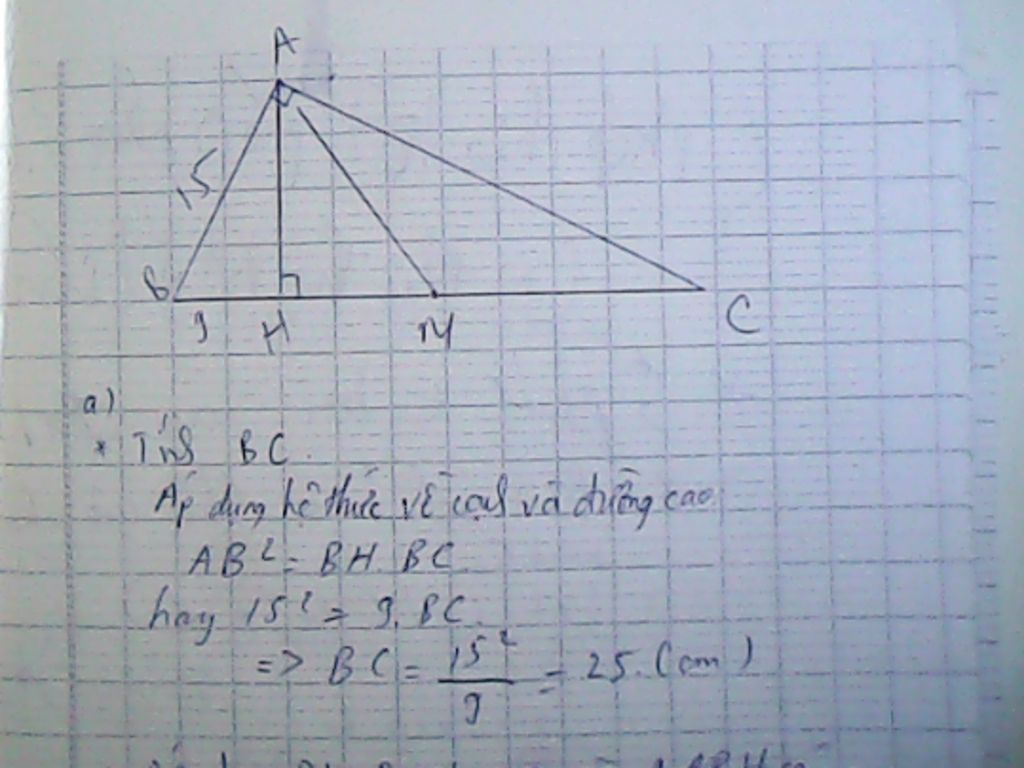 A
15
B
9
H
M
C
a)
* Tính BC.
Áp dụng hệ thức về cạnh và đường cao
AB² = BH. BC.
hay 15² = 9. BC.
=> BC = 15²/9 = 25. (cm)